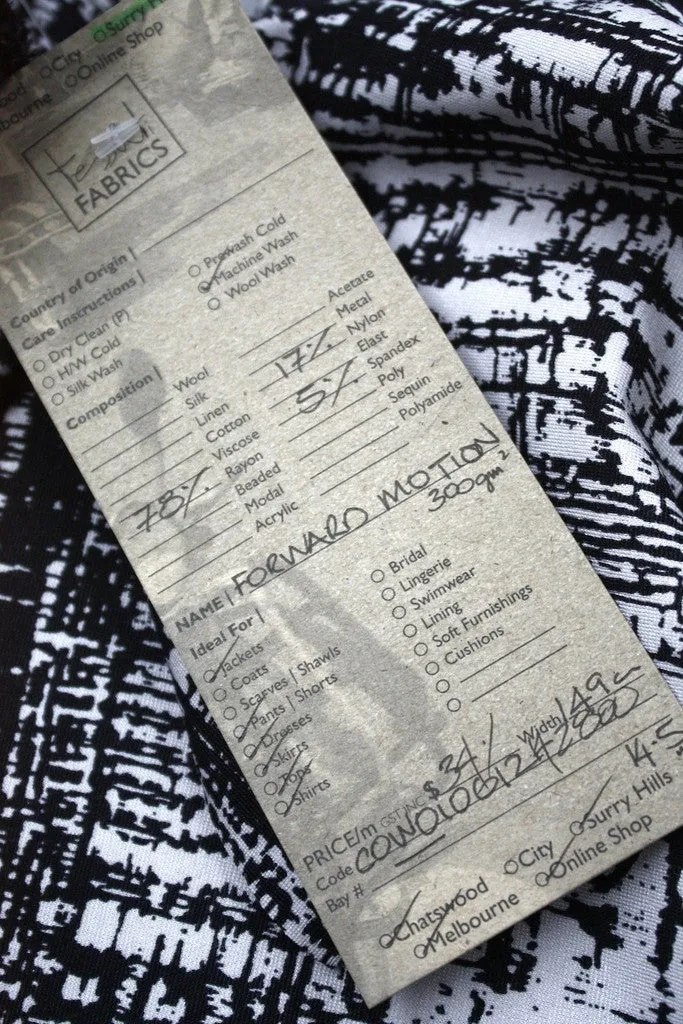 City
Surry H
Online Shop
ood
bourne
FABRICS
Country of Origin |
Care Instructions |
Dry Clean (P)
H/W Cold
Silk Wash
Prewash Cold
Machine Wash
Wool Wash
Composition |
Wool
Silk
Linen
Cotton
Viscose
78% Rayon
Beaded
Modal
Acrylic
Acetate
Metal
17% Nylon
Elast
5% Spandex
Poly
Sequin
Polyamide
NAME | FORWARD MOTION
300gm²
Ideal For |
Jackets
Coats
Scarves | Shawls
Pants | Shorts
Dresses
Skirts
Tops
Shirts
Bridal
Lingerie
Swimwear
Lining
Soft Furnishings
Cushions
PRICE/m GST INC $34/ Width 149
Code
Bay #
14.5
Chatswood
City
Surry Hills
Melbourne
Online Shop